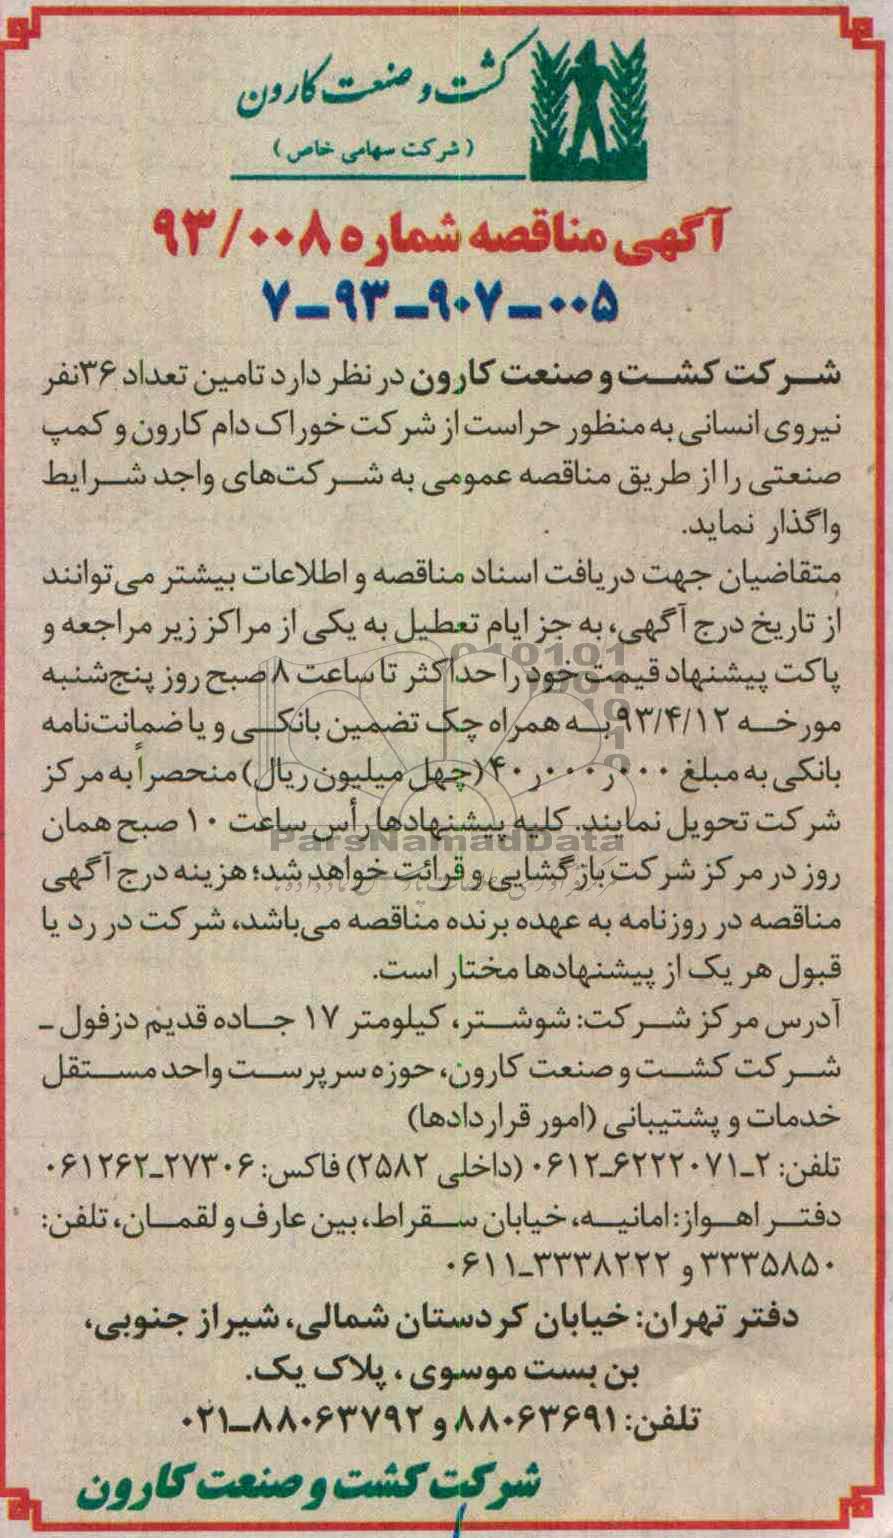 کشت و صنعت کارون
( شرکت سهامی خاص )
آگهی مناقصه شماره ۹۳/۰۰۸
۷-۹۳-۹۰۷-۰۰۵
شرکت کشت و صنعت کارون در نظر دارد تامین تعداد ۳۶نفر
نیروی انسانی به منظور حراست از شرکت خوراک دام کارون و کمپ
صنعتی را از طریق مناقصه عمومی به شرکت‌های واجد شرایط
واگذار نماید.
متقاضیان جهت دریافت اسناد مناقصه و اطلاعات بیشتر می‌توانند
از تاریخ درج آگهی، به جز ایام تعطیل به یکی از مراکز زیر مراجعه و
پاکت پیشنهاد قیمت خود را حداکثر تا ساعت ۸ صبح روز پنج‌شنبه
مورخه ۹۳/۴/۱۲ به همراه چک تضمین بانکی و یا ضمانت‌نامه
بانکی به مبلغ ۴۰ر۰۰۰ر۰۰۰ (چهل میلیون ریال) منحصراً به مرکز
شرکت تحویل نمایند. کلیه پیشنهادها رأس ساعت ۱۰ صبح همان
روز در مرکز شرکت بازگشایی و قرائت خواهد شد؛ هزینه درج آگهی
مناقصه در روزنامه به عهده برنده مناقصه می‌باشد، شرکت در رد یا
قبول هر یک از پیشنهادها مختار است.
آدرس مرکز شرکت: شوشتر، کیلومتر ۱۷ جاده قدیم دزفول -
شرکت کشت و صنعت کارون، حوزه سرپرست واحد مستقل
خدمات و پشتیبانی (امور قراردادها)
تلفن: ۲-۶۲۲۲۰۷۱-۰۶۱۲ (داخلی ۲۵۸۲) فاکس: ۲۷۳۰۶-۰۶۱۲۶۲
دفتر اهواز: امانیه، خیابان سقراط، بین عارف و لقمان، تلفن:
۳۳۳۵۸۵۰ و ۳۳۳۸۲۲۲-۰۶۱۱
دفتر تهران: خیابان کردستان شمالی، شیراز جنوبی،
بن بست موسوی ، پلاک یک.
تلفن: ۸۸۰۶۳۶۹۱ و ۸۸۰۶۳۷۹۲-۰۲۱
شرکت کشت و صنعت کارون
ParsNamadData